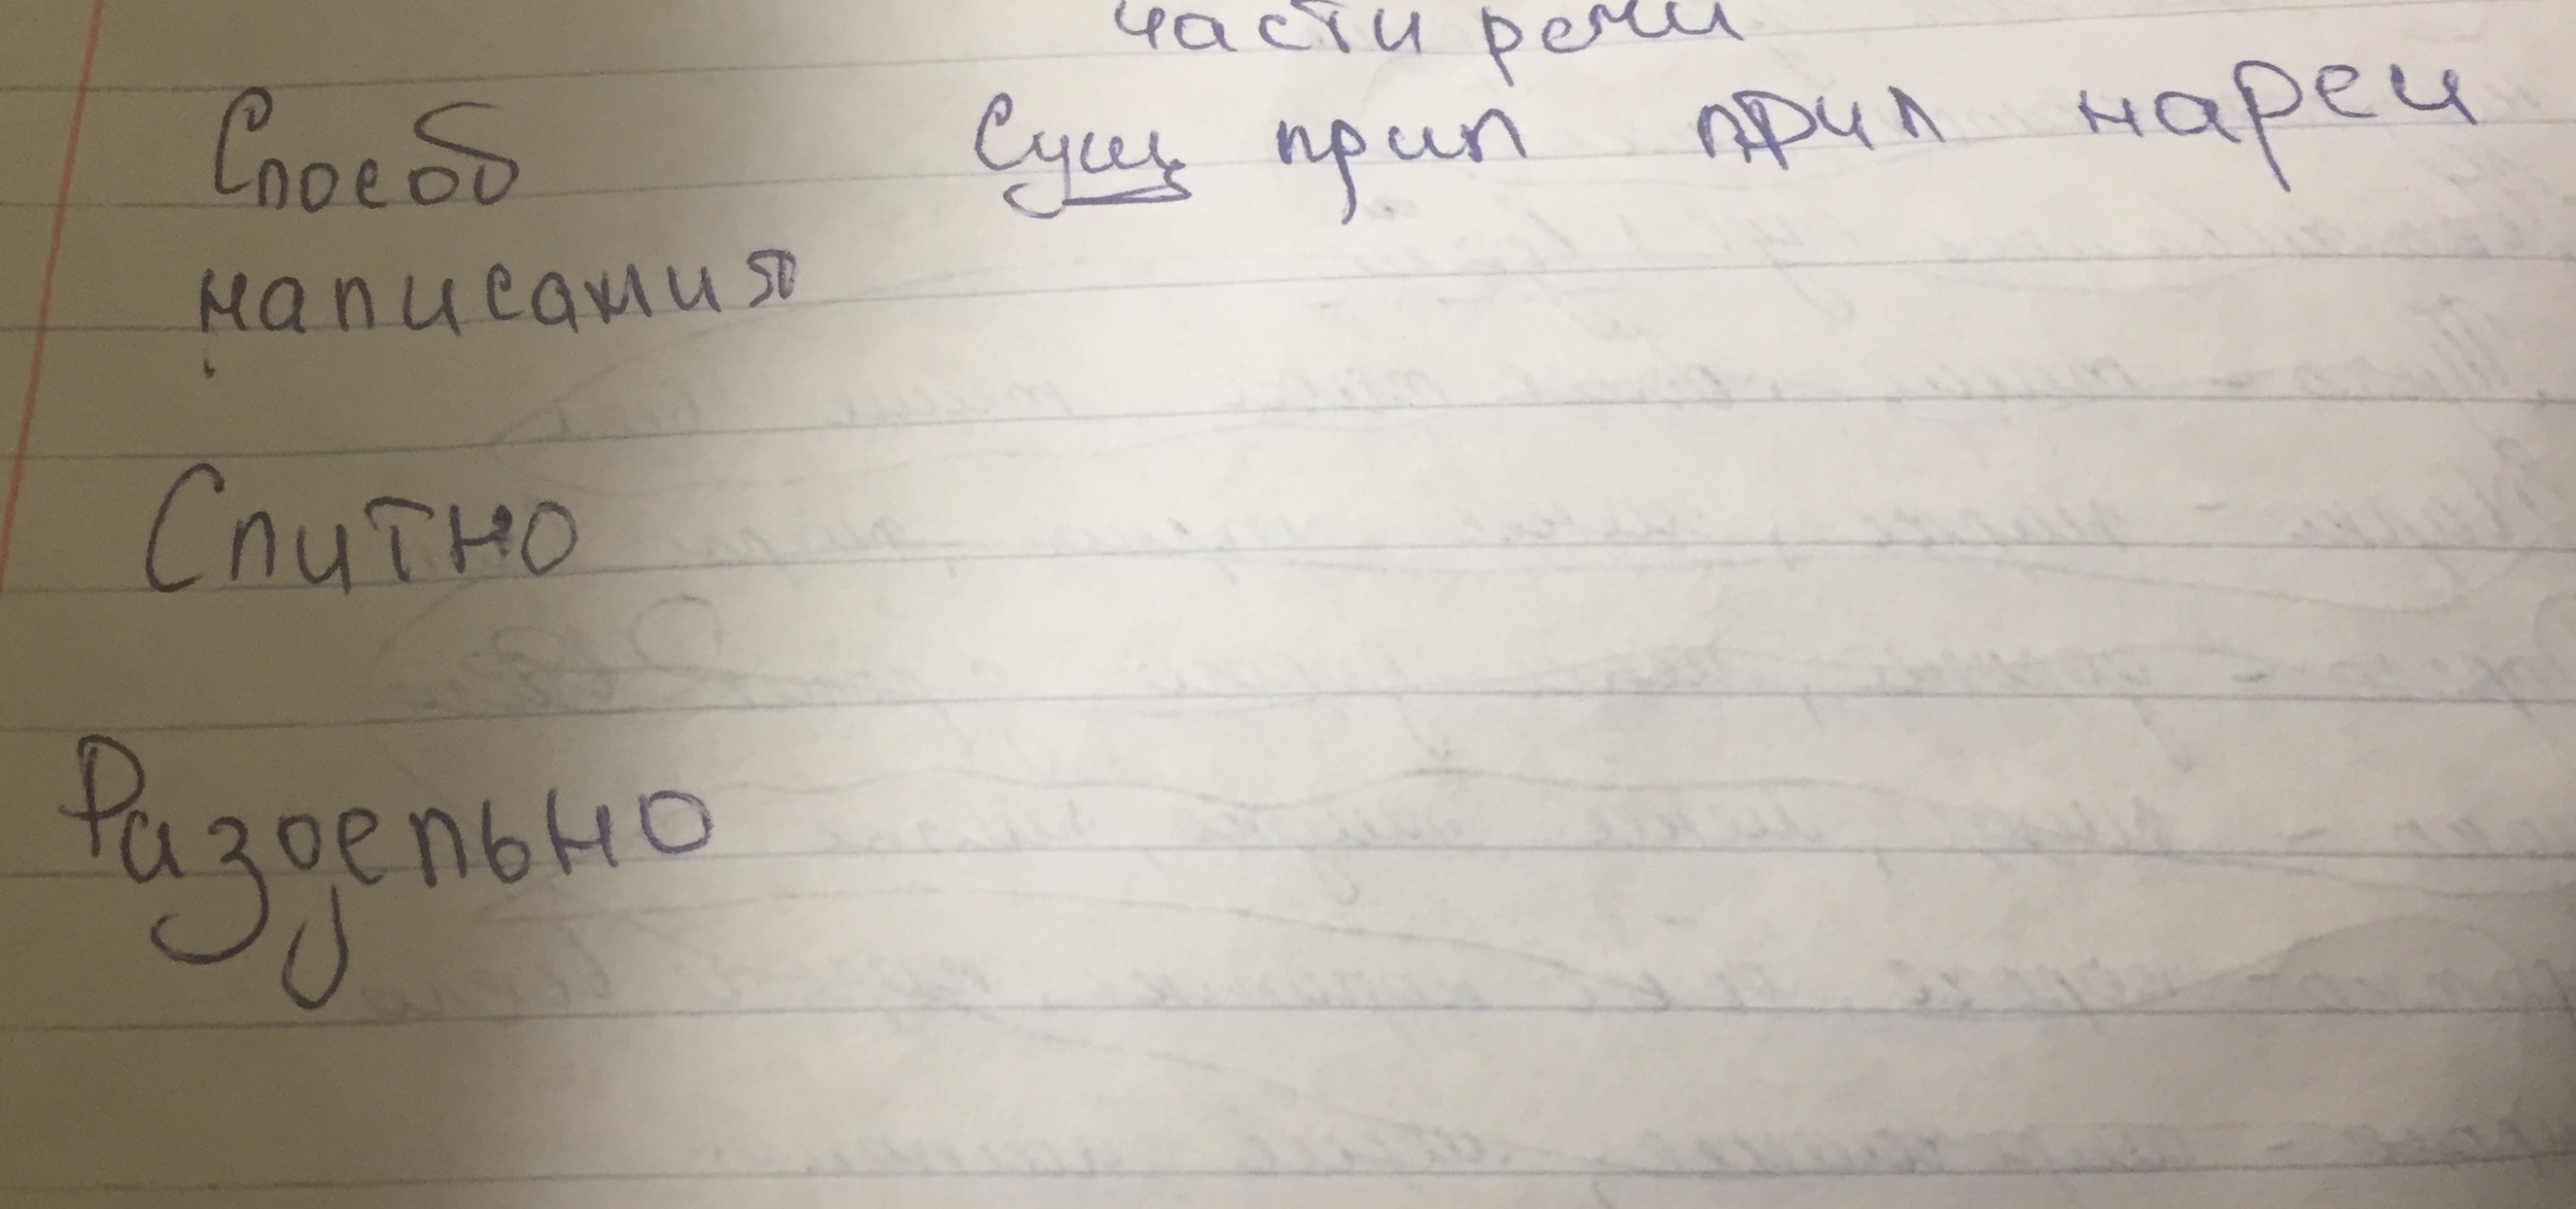 части речи
Способ Сущ прил прил нареч
написания
Слитно
Раздельно